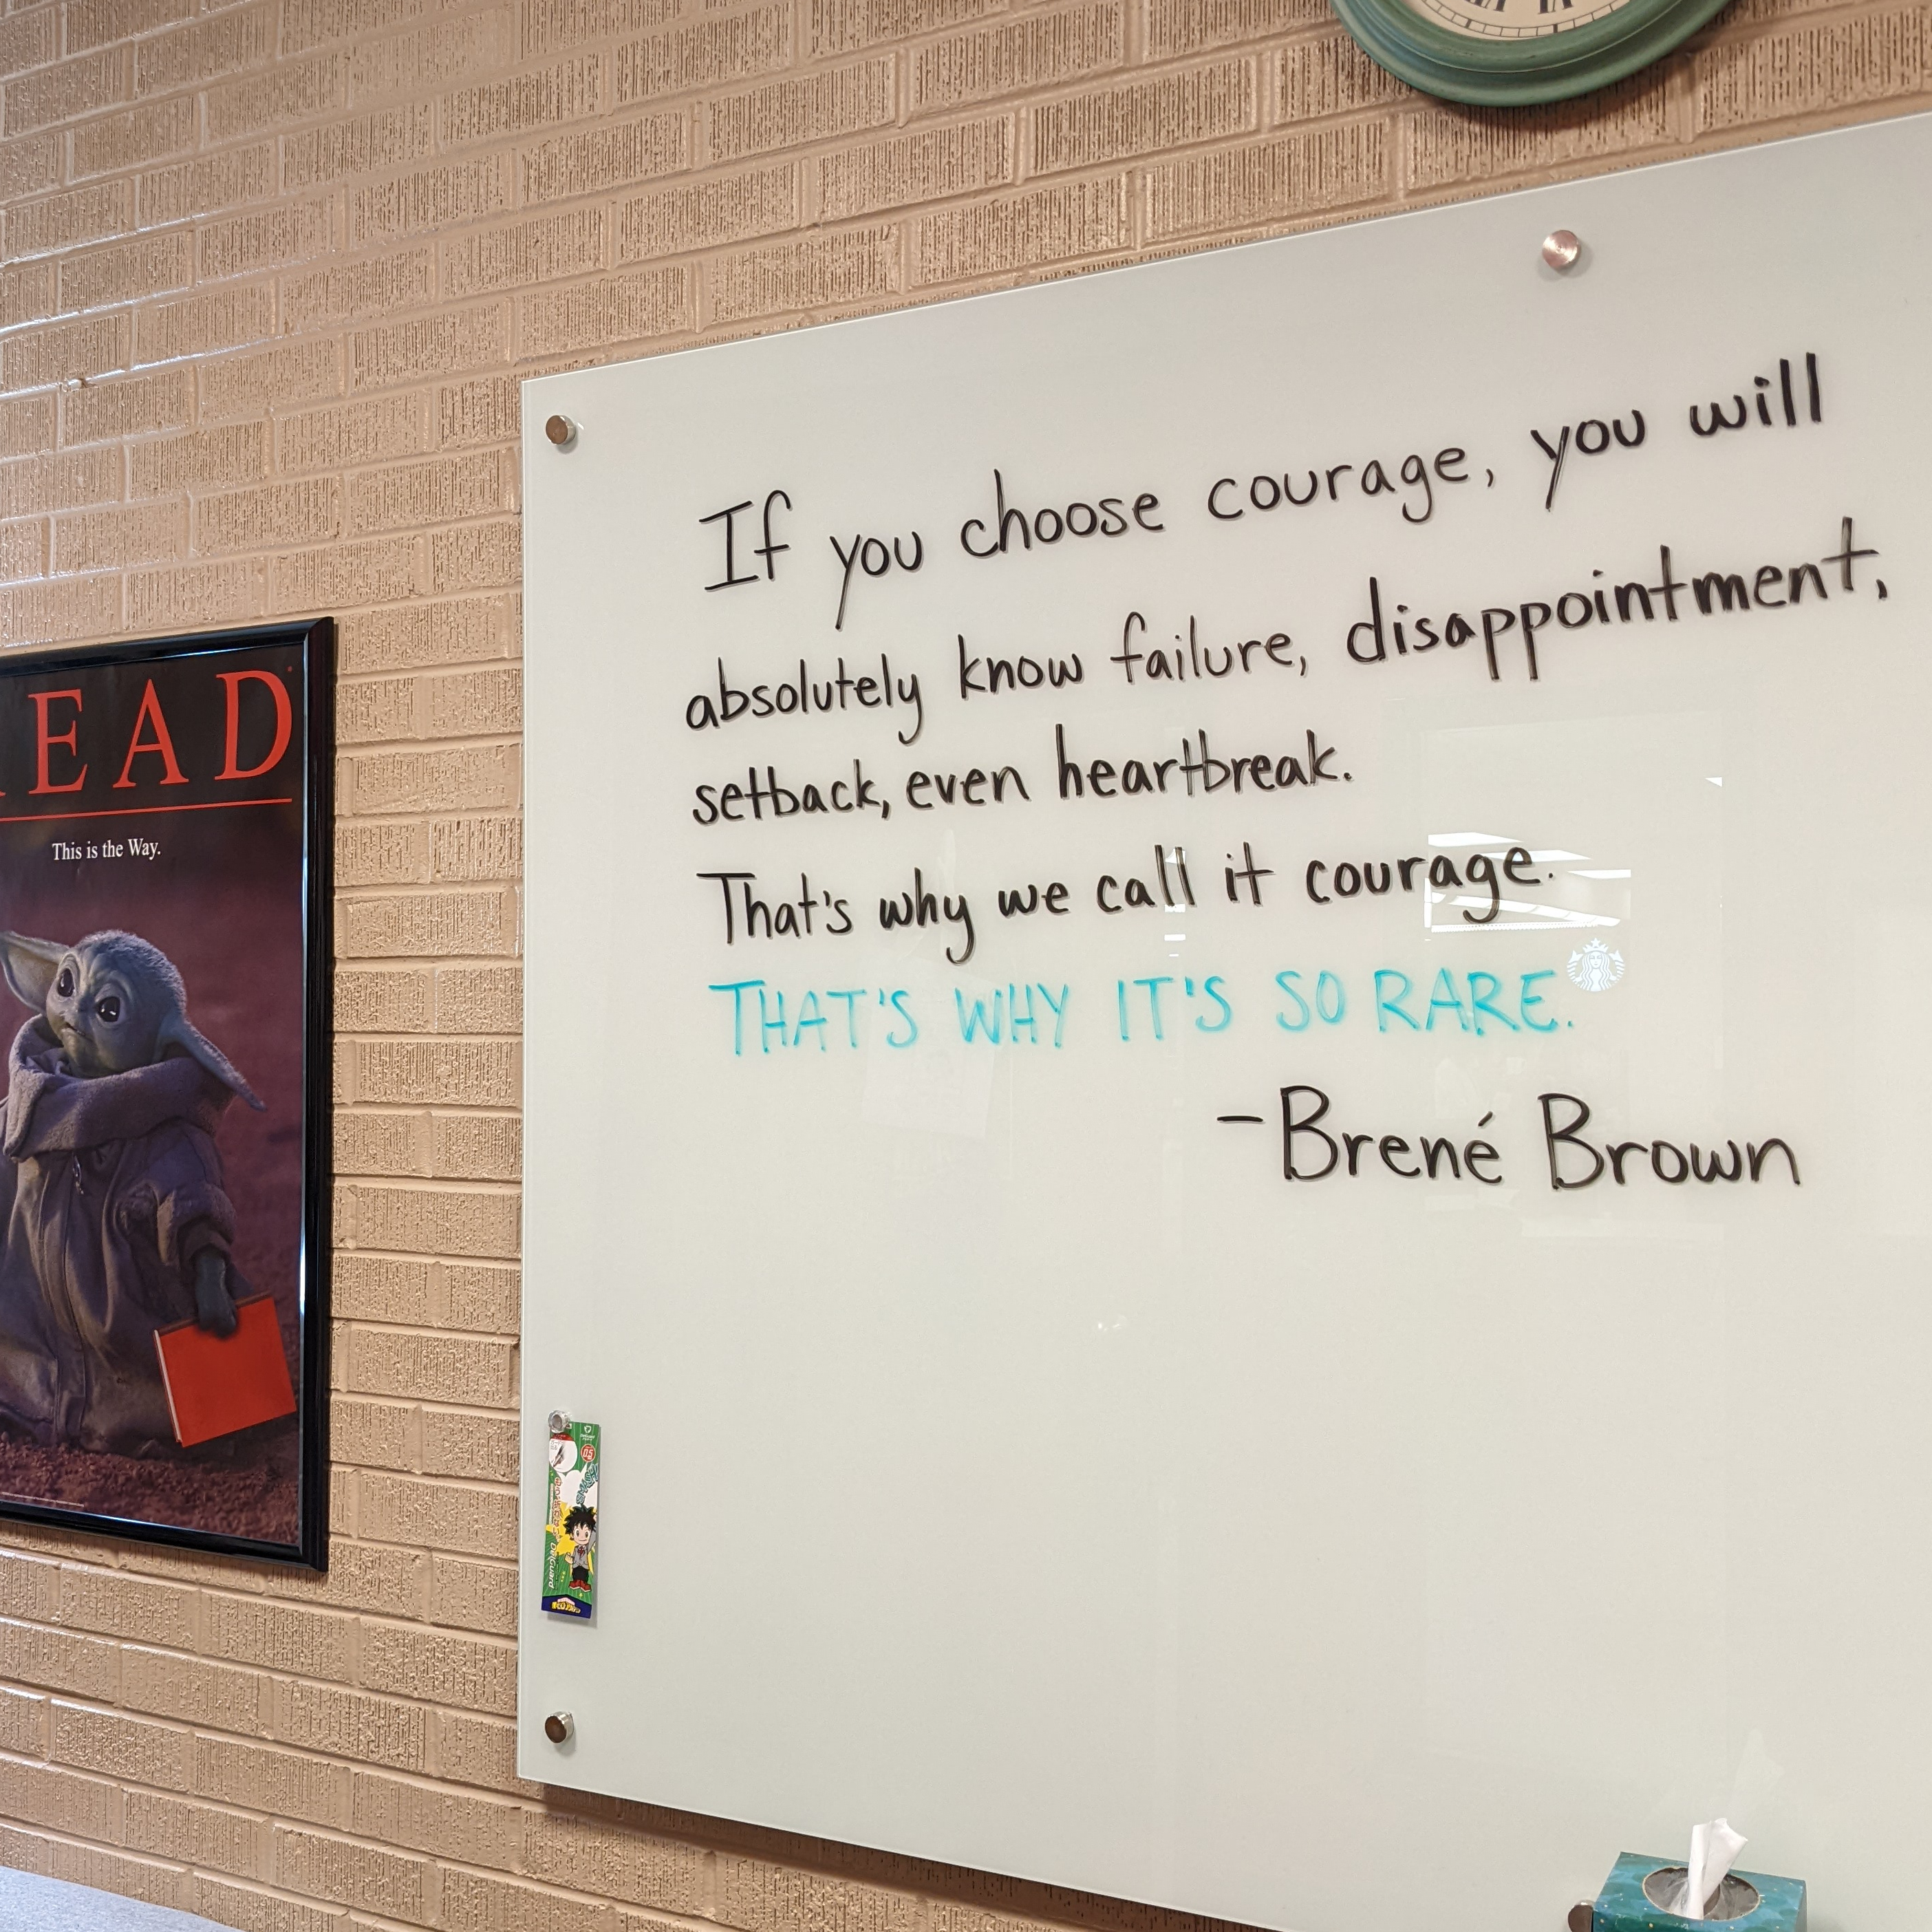 EAD
This is the Way.
If you choose courage, you will
absolutely know failure, disappointment,
setback, even heartbreak.
That's why we call it courage.
THAT'S WHY IT'S SO RARE.
-Brené Brown